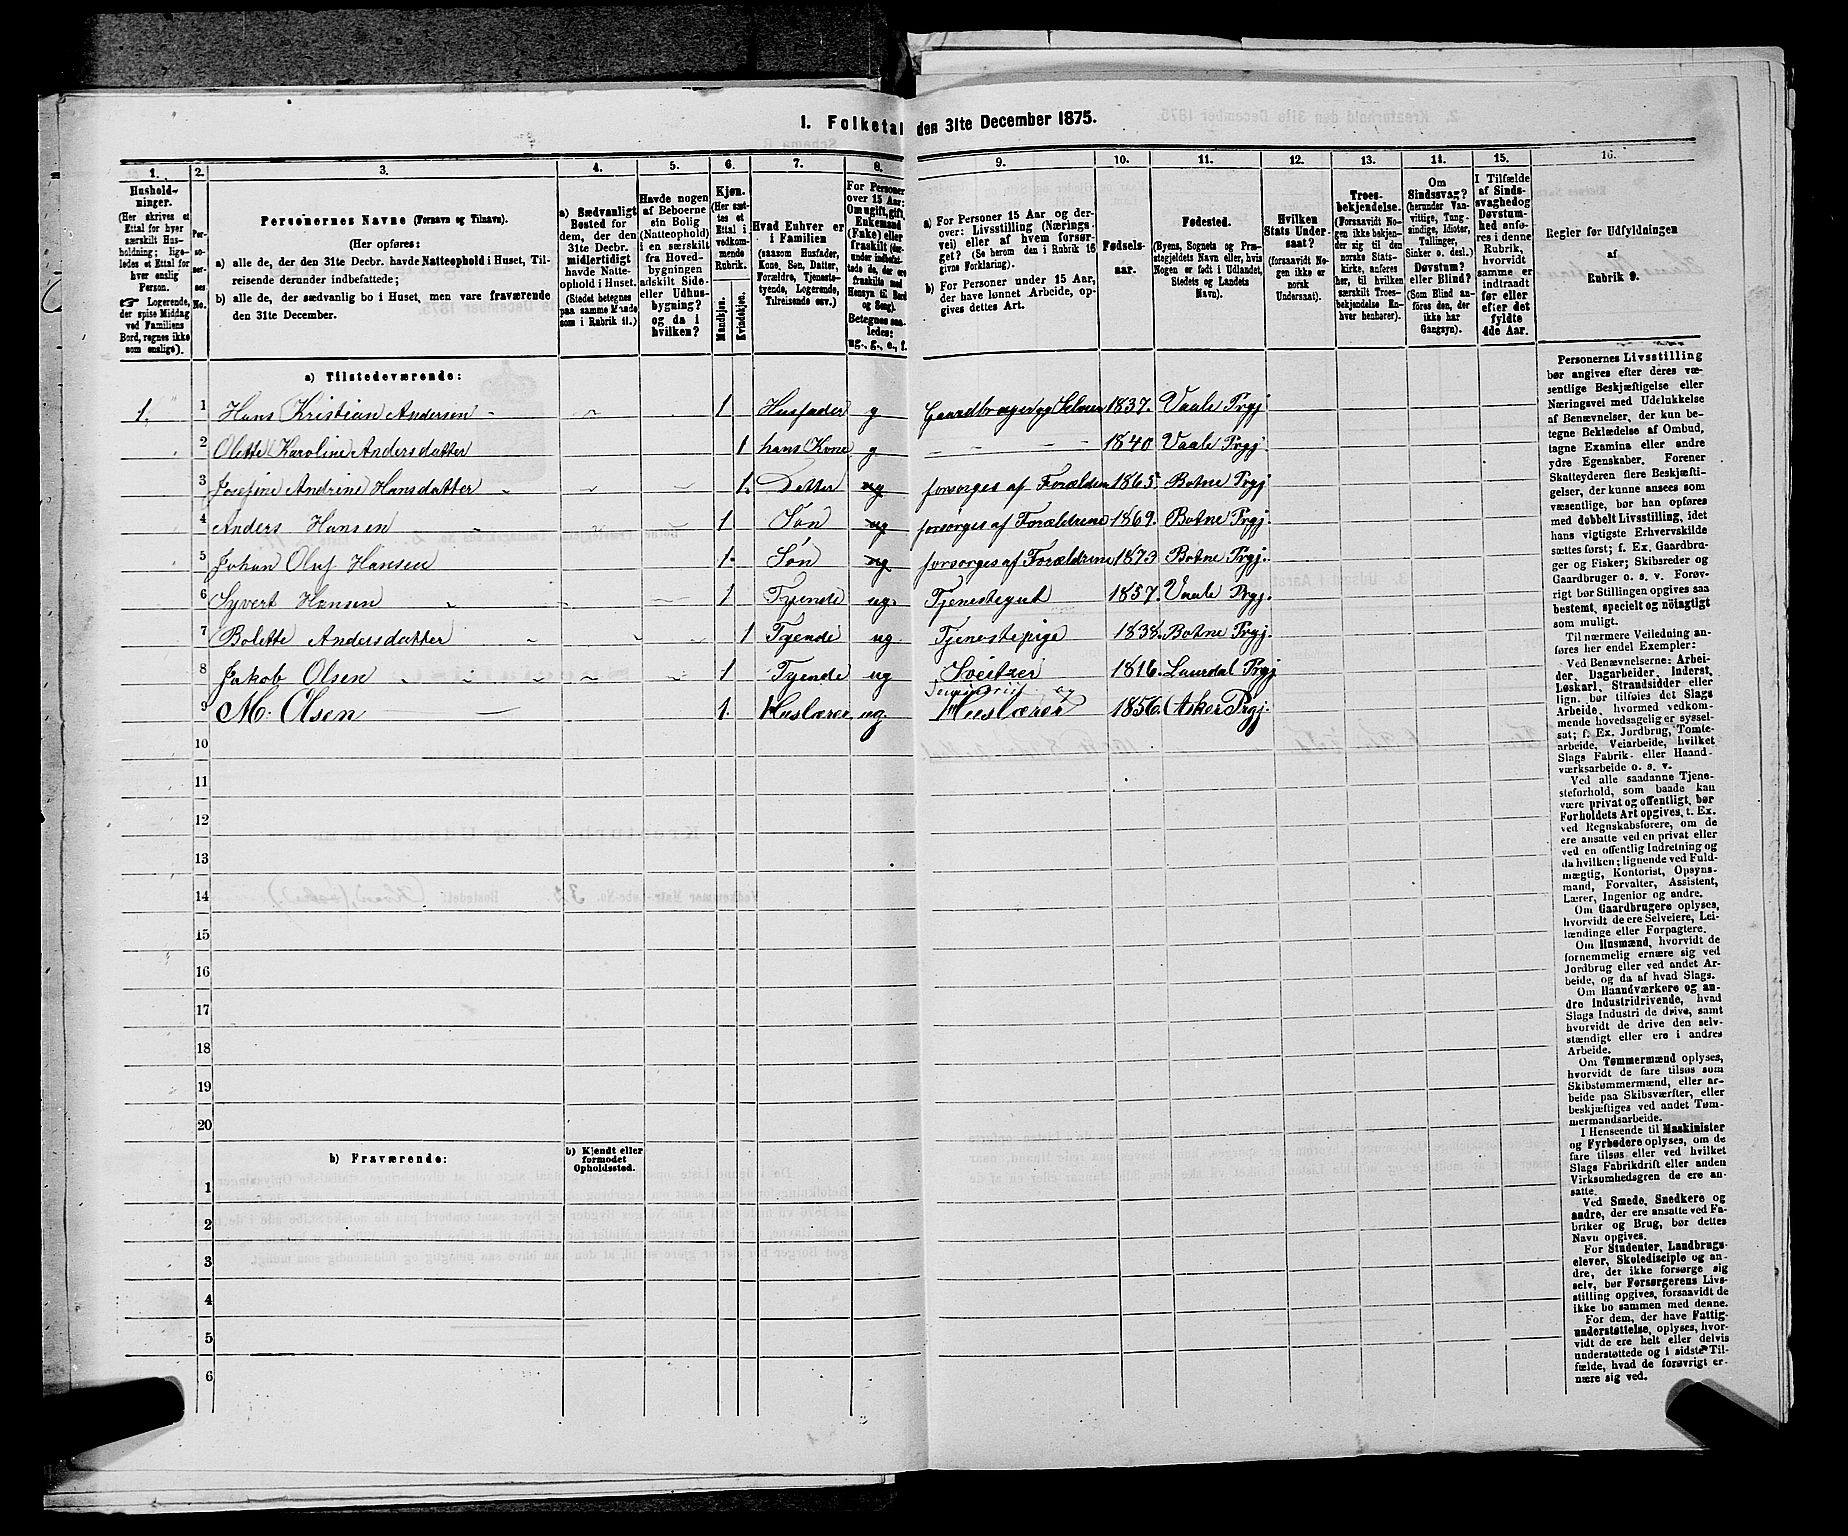 1. Folketal den 31te December 1875.
1. 2. 3. 4. 5. 6. 7. 8. 9. 10. 11. 12. 13. 14. 15. 16.
Hushold-
ninger.
(Her skrives et
Ettal for hver
særskilt Hus-
holdning; lige-
ledes et Ettal for
hver enslig
Person.
☞ Logerende,
der spise Middag
ved Familiens
Bord, regnes ikke
som enslige).
Per-
so-
ner-
nes.
No.
Personernes Navne (Fornavn og Tilnavn).
(Her opføres:
a) alle de, der den 31te Decbr. havde Natteophold i Huset, Til-
reisende derunder indbefattede;
b) alle de, der sædvanlig bo i Huset, men vare fraværende
den 31te December.
a) Sædvanligt
Bosted for
dem, der den
31te Decbr.
midlertidigt
havde Natte-
ophold i Huset.
(Stedet betegnes
paa samme Maade
som i Rubrik 11.)
Havde nogen
af Beboerne
sin Bolig
(Natteophold)
i en særskilt
fra Hoved-
bygningen
adskilt Side-
eller Udhus-
bygning?
og da i
hvilken?
Kjøn.
(Her sæt-
tes et
Ettal i
vedkom-
mende
Rubrik.
Mandkjøn.
Kvindekjøn.
Hvad Enhver er
i Familien
(saasom Husfader,
Kone, Søn, Datter,
Forældre, Tjeneste-
tyende, Logerende,
Tilreisende osv.)
For Personer
over 15 Aar:
Om ugift, gift,
Enkemand
(Enke) eller
fraskilt (der-
under indbefat-
tede de, der ere
fraskilte med
Hensyn til Bord
og Seng).
Betegnes saa-
ledes:
ug., g., e., f.
a) For Personer 15 Aar og der-
over: Livsstilling (Nærings-
vei) eller af hvem forsør-
get? (Se herom den i Rubrik 16
givne Forklaring).
b) For Personer under 15 Aar,
der have lønnet Arbeide, op-
gives dettes Art.
Fødsels-
aar.
Fødested.
(Byens, Sognets og Præ-
stegjeldets Navn eller, hvis
Nogen er født i Udlandet,
Stedets og Landets
Navn).
Hvilken
Stats Under-
saat?
(forsaavidt No-
gen ikke er
norsk
Undersaat).
Troes-
bekjendelse.
(Forsaavidt No-
gen ikke bekjen-
der sig til den
norske Stats-
kirke, anføres
her, til hvilken
særskilt Troes-
bekjendelse En-
hver henhører).
Om
Sindssvag?
(herunder Van-
vittige, Tung-
sindige, Idioter,
Tullinger,
Sinker o. desl.)
Døvstum?
eller Blind?
(Som Blind an-
føres den, der
ikke har
Gangsyn).
I Tilfælde
af Sinds-
svaghed og
Døvstum-
hed anfø-
res i denne
Rubrik,
hvorvidt
samme er
indtraadt
før eller
efter det
fyldte
4de Aar.
Regler for Udfyldningen
af
Rubrik 9.
a) Tilstedeværende:
1. 1 Hans Kristian Andersen 1 Husfader g Gaardbruger og Selveier 1837. Vaale Prgj
2 Olette Karoline Andersdatter 1 hans Kone g 1840 Vaale Prgj.
3 Josefine Andrine Hansdatter 1. Datter ug forsørges af Forældrene 1865. Botne Prgj
4 Anders Hansen 1 Søn ug forsørges af Forældrene 1869. Botne Prgj.
5 Johan Oluf Hansen 1. Søn ug forsørges af Forældrene 1873 Botne Prgj.
6 Syvert Hansen 1 Tyende ug. Tjenestegut 1857. Vaale Prgj.
7 Bolette Andersdatter 1 Tyende ug Tjenestepige 1838. Botne Prgj.
8 Jakob Olsen 1 Tyende ug Sveitzer 1816. Laurdal Prgj
9 M. Olsen 1. Huslærer ug. Seminarist og Huslærer 1856. Asker Prgj.
10
11
12
13
14
15
16
17
18
19
20
b) Fraværende:
b) Kjendt eller
formodet
Opholdssted.
1
2
3
4
5
6
Personernes Livsstilling
bør angives efter deres væ-
sentlige Beskjæftigelse eller
Næringsvei med Udelukkelse
af Benævnelser, der kun be-
tegne Beklædelse af Ombud,
tagne Examina eller andre
ydre Egenskaber. Forener
Skatteyderen flere Beskjæfti-
gelser, der kunne ansees som
væsentlige, bør han opføres
med dobbelt Livsstilling, idet
hans vigtigste Erhvervskilde
sættes først; f. Ex. Gaardbru-
ger og Fisker; Skibsreder og
Gaardbruger o. s. v. Forøv-
rigt bør Stillingen opgives saa
bestemt, specielt og nøiagtigt
som muligt.
Til nærmere Veiledning an-
føres her endel Exempler:
Ved Benævnelserne: Arbei-
der, Dagarbeider, Inderst,
Løskarl, Strandsidder eller
lign. bør tilføies det Slags
Arbeide, hvormed vedkom-
mende hovedsagelig er syssel-
sat; f. Ex. Jordbrug, Tomte-
arbeide, Veiarbeide, hvilket
Slags Fabrik- eller Haand-
værksarbeide o. s. v.
Ved alle saadanne Tjene-
steforhold, som baade kan
være privat og offentligt, bør
Forholdets Art opgives, t. Ex.
ved Regnskabsførere, om de
ere ansatte ved en privat eller
ved en offentlig Indretning og
da hvilken; lignende ved Fuld-
mægtig, Kontorist, Opsyns-
mand, Forvalter, Assistent,
Lærer, Ingeniør og andre.
Om Gaardbrugere oplyses,
hvorvidt de ere Selveiere, Lei-
lændinge eller Forpagtere.
Om Husmænd, hvorvidt de
fornemmelig ernære sig ved
Jordbrug eller ved andet Ar-
beide, og da af hvad Slags.
Om Haandværkere og an-
dre Industridrivende, hvad
Slags Industri de drive, samt
hvorvidt de drive den selv-
stændigt eller ere i andres
Arbeide.
Om Tømmermænd oplyses,
hvorvidt de fare tilsøs som
Skibstømmermænd, eller ar-
beide paa Skibsværfter, eller
beskjæftiges ved andet Tøm-
mermandsarbeide.
I Henseende til Maskinister
og Fyrbødere oplyses, om de
fare tilsøs eller ved hvilket
Slags Fabrikdrift eller anden
Virksomhedsgren de ere an-
satte.
Ved Smede, Snedkere og
andre, der ere ansatte ved Fa-
briker og Brug, bør dettes
Navn opgives.
For Studenter, Landbrugs-
elever, Skoledisciple og an-
dre, der ikke forsørge sig
selv, bør Forsørgerens Livs-
stilling opgives, forsaavidt de
ikke bo sammen med denne.
For dem, der have Fattig-
understøttelse, oplyses, hvor-
vidt de ere helt eller delvis
understøttede og i sidste Til-
fælde, hvad de forøvrigt er-
nære sig ved.